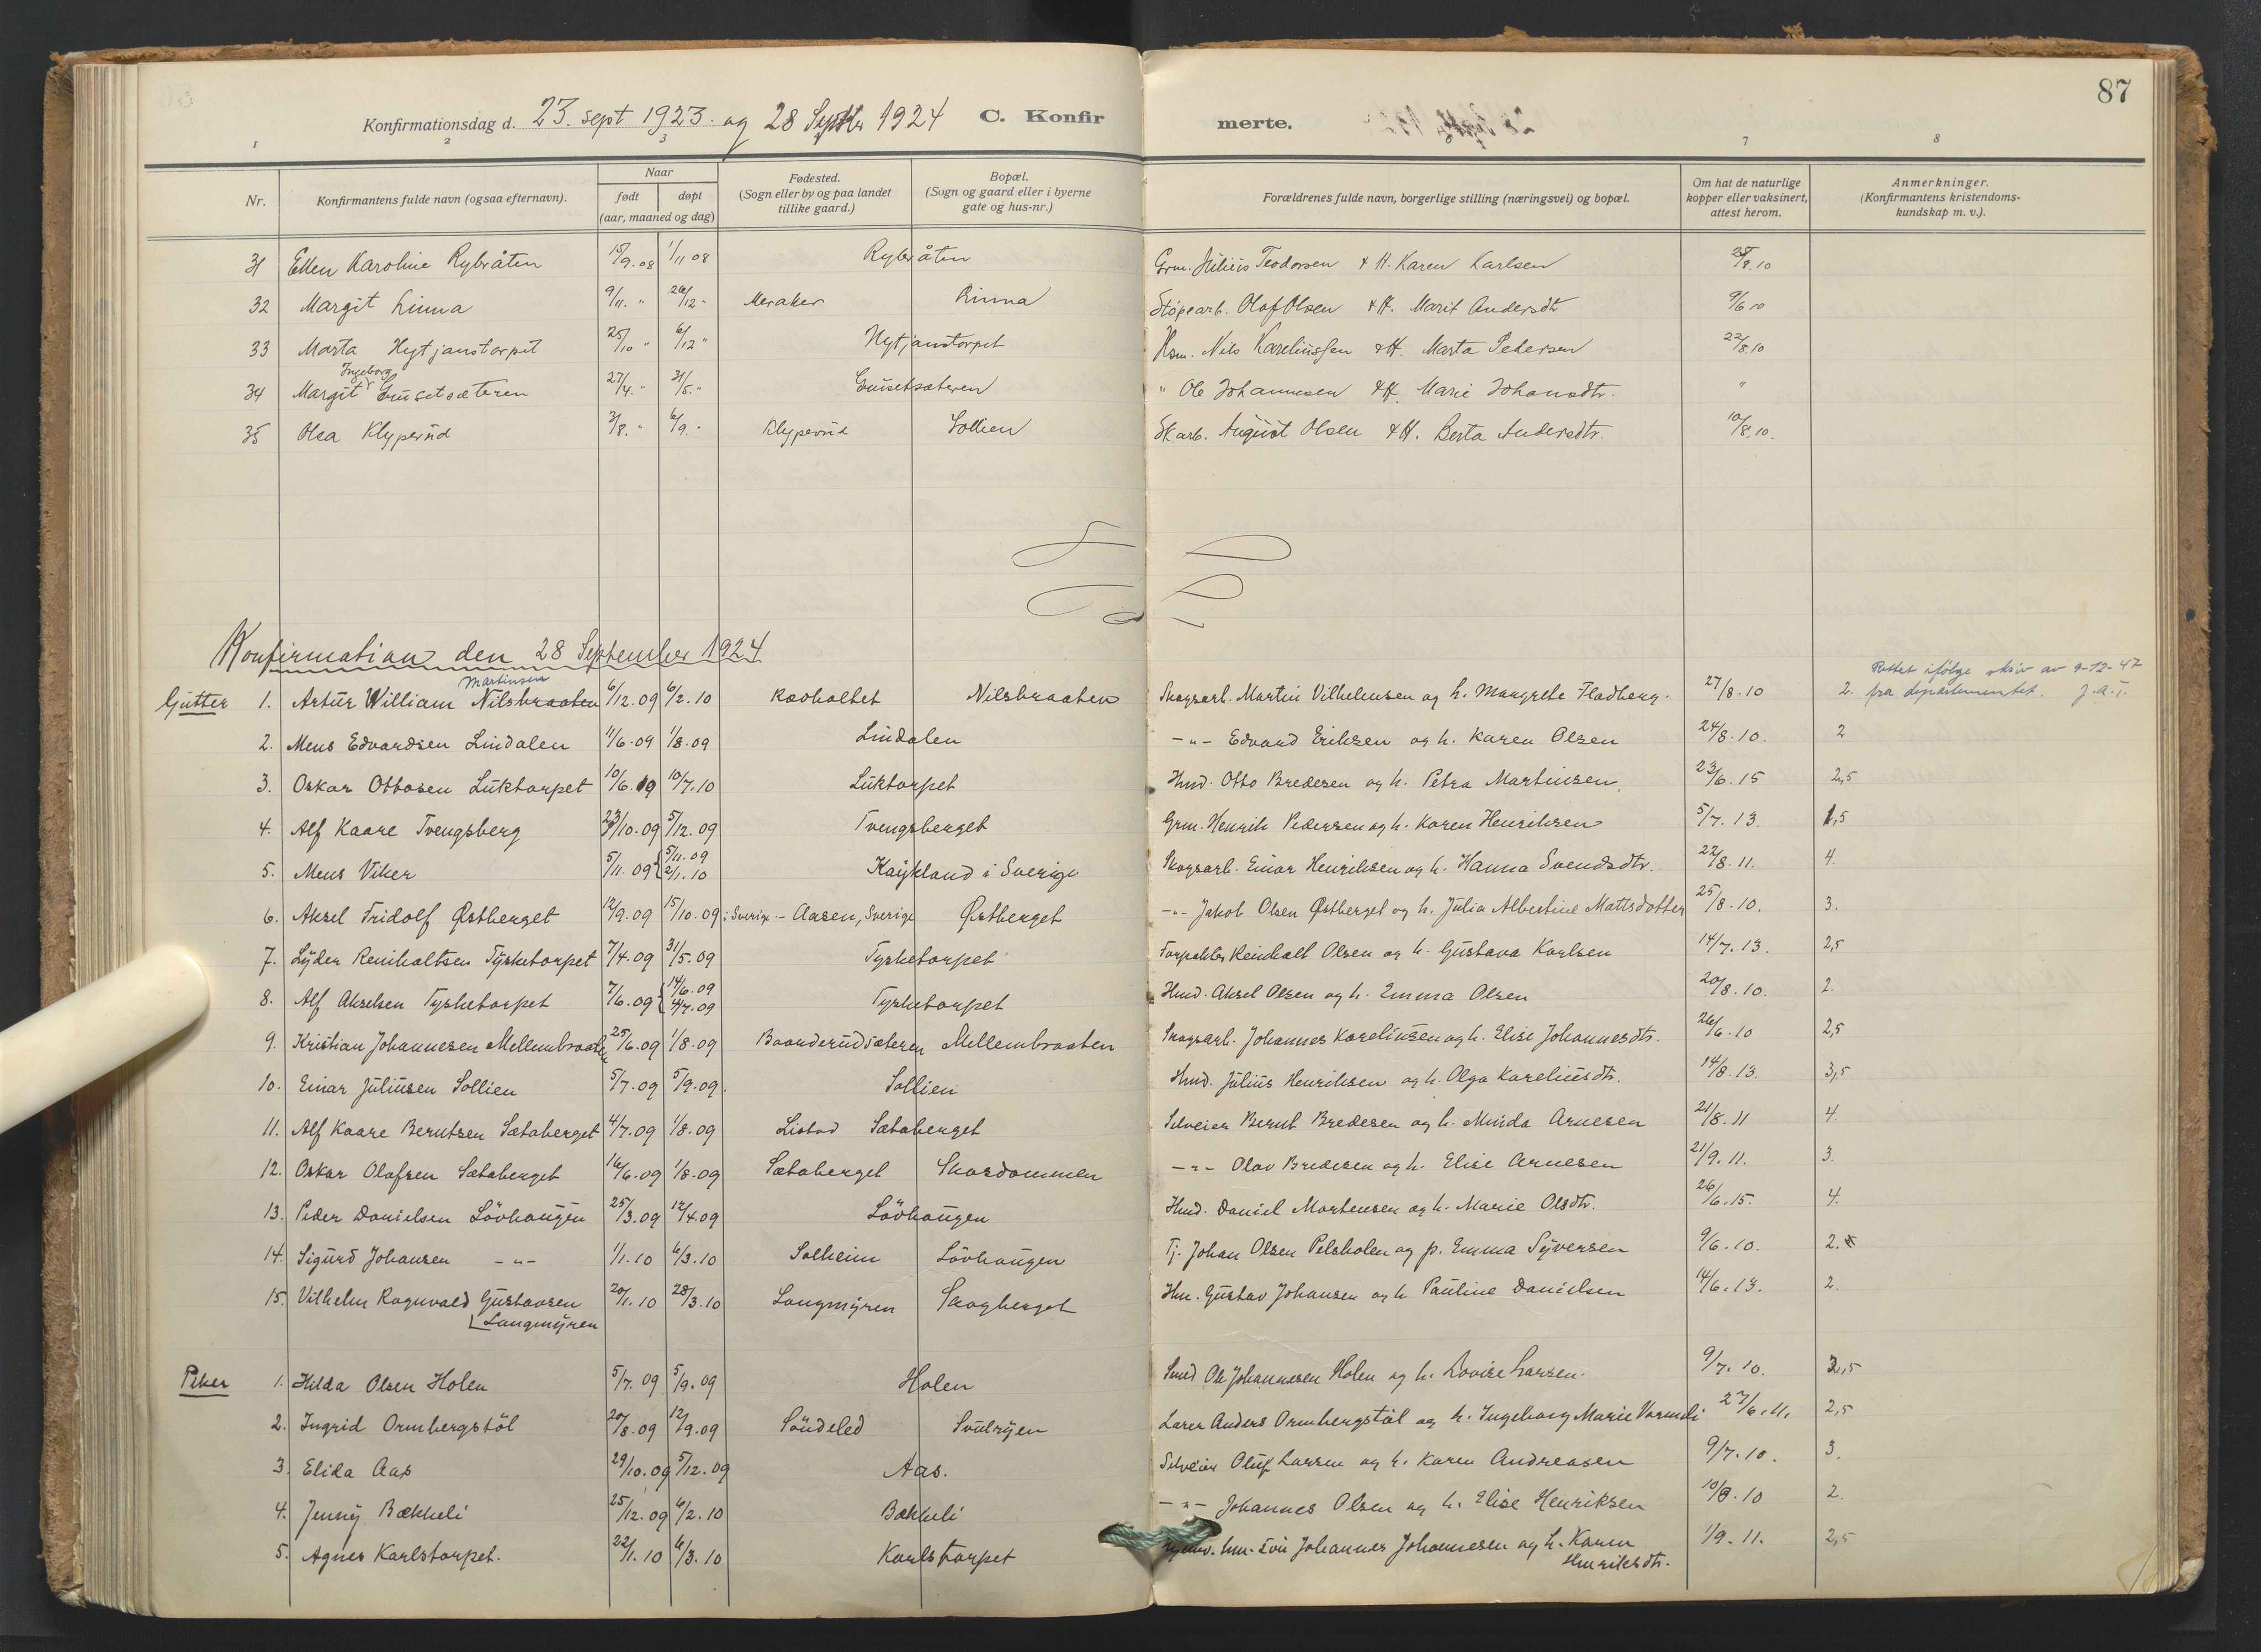 87
Konfirmationsdag d. 23. sept 1923. og 28 Septbr 1924 C. Konfir merte.
1 2 3 7 8
Nr. Konfirmantens fulde navn (ogsaa efternavn). Naar født døpt (aar, maaned og dag) Fødested. (Sogn eller by og paa landet tillike gaard.) Bopæl. (Sogn og gaard eller i byerne gate og hus-nr.) Forældrenes fulde navn, borgerlige stilling (næringsvei) og bopæl. Om hat de naturlige kopper eller vaksinert, attest herom. Anmerkninger. (Konfirmantens kristendoms-kundskap m. v.).
31 Ellen Karoline Rybråten 15/9.08 1/11 08 Rybråten Grm. Julius Teodorsen & H. Karen Karlsen 25/8.10
32 Margit Linna 9/11. " 26/12 " Meraker Linna Støpearb. Olaf Olsen & H. Marit Andersdtr 9/6 10
33 Marta Hytjanstorpet 25/10 " 6/12 " Hytjanstorpet Hsm. Nils Kareliussen & H. Marta Pedersen 22/8.10
Ingeborg
34 Margit Grusetsæteren 27/4. " 31/5. " Grusetsæteren " Ole Johannesen & H. Marie Johansdtr. "
35 Olea Klyperud 31/8. " 6/9. " Klyperud Sollien Sk.arb. August Olsen & H. Berta Andersdtr. 10/8.10.
Konfirmation den 28 September 1924
Rettet ifølge skriv av 9-12-47
Martinsen
Gutter 1. Artur William Nilsbraaten 6/12.09 6/2.10 Kovholtet Nilsbraaten Skogsarb. Martin Vilhelmsen og h. Margrete Fladberg. 27/8.10 2. fra departementet. J.A.T.
2. Mens Edvardsen Lindalen 11/6.09 1/8.09 Lindalen -"- Edvard Eriksen og h. Karen Olsen 24/8.10. 2
3. Oskar Ottosen Luktorpet 10/6.09 10/7.10 Luktorpet Hmd. Otto Bredesen og h. Petra Martinsen, 23/6.15 2,5
4. Alf Kaare Tvengsberg 23/10.09 5/12.09 Tvengsberget Grm. Henrik Pedersen og h. Karen Henriksen 5/7.13. 1,5
5. Mens Viker 5/11.09 5/11.09 2/1.10 i Sverige Skogsarb. Einar Henriksen og h. Hanna Svendsdtr. 22/8.11. 4.
6. Aksel Fridolf Østberget 12/9.09 15/10.09 i Sverige - Aasen, Sverige Østberget -"- Jakob Olsen Østberget og h. Julia Albertine Mattsdotter 25/8.10. 3.
7. Lyder Reinholtsen Tysketorpet 7/4.09 31/5.09 Tysketorpet Forpakter Reinholt Olsen og h. Gustava Karlsen 14/7.13. 2,5
8. Alf Akselsen Tysketorpet 7/6.09 14/6.09 4/7.09 Tysketorpet Hmd. Aksel Olsen og h. Emma Olsen 20/8.10. 2.
9. Kristian Johannesen Mellembraaten 25/6.09 1/8.09 Baanderudsæteren Mellembraaten Skogsarb. Johannes Kareliusen og h. Elise Johannesdtr. 26/6.10 2,5
10. Einar Juliusen Sollien 5/7.09 5/9.09. Sollien Hmd. Julius Henriksen og h. Olga Kareliusdtr. 14/8.13. 3,5
11. Alf Kaare Berntsen Sætaberget 4/7.09 1/8.09 Listad Sætaberget Selveier Bernt Bredesen og h. Minda Arnesen 21/8.11 4.
12. Oskar Olafsen Sætaberget 16/6.09 1/8.09 Sætaberget Skasdammen -"- Olav Bredesen og h. Elise Arnesen 21/9.11. 3.
13. Peder Danielsen Lövhaugen 25/3.09 12/4.09 Lövhaugen Hmd. Daniel Mortensen og h. Marie Olsdtr. 26/6.15. 4.
14. Sigurd Johansen -"- 1/1.10 6/3.10 Solheim Lövhaugen Tj. Johan Olsen Pelsholen og p. Emma Syversen 9/6.10. 2.
15. Vilhelm Ragnvald Gustavsen Langmyren 20/1.10 28/3.10 Langmyren Skogberget Hm. Gustav Johansen og h Pauline Danielsen 14/6.13. 2.
Piker 1. Hilda Olsen Holen 5/7.09 5/9.09 Holen Smed Ole Johannesen Holen og h. Lovise Larsen. 9/7.10. 2,5
2. Ingrid Ormbergstöl 20/8.09 12/9.09 Söndeled Svulryen Lærer Anders Ormbergstöl og h. Ingeborg Marie Varmeli 27/6.11. 2,5
3. Elida Aas 29/10.09 5/12.09 Aas. Selveier Oluf Larsen og h. Karen Andreasen 9/7.10. 3.
4. Jenny Bækkeli 25/12.09 6/2.10 Bækkeli -"- Johannes Olsen og h. Elise Henriksen 10/8.10 2.
5. Agnes Karlstorpet. 22/1.10 6/3.10 Karlstorpet Johannes Johannesen og h. Karen Henriksdtr. 1/9.11. 2,5